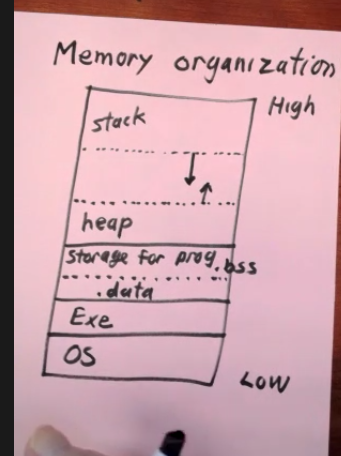 Memory organization
High
stack
heap
storage for prog .bss
.data
Exe
OS
Low